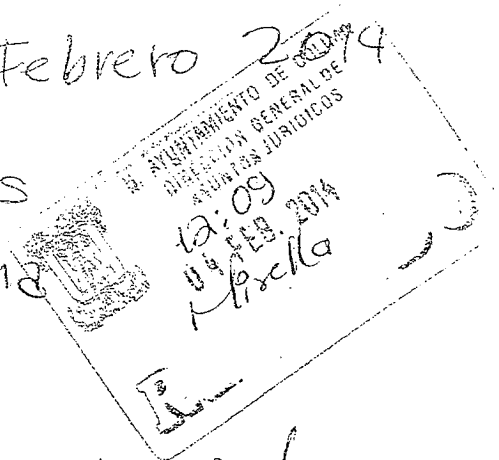 Febrero 2014
H. AYUNTAMIENTO DE COLIMA
DIRECCIÓN GENERAL DE
ASUNTOS JURIDICOS
12:09
04 FEB. 2014
Mirella